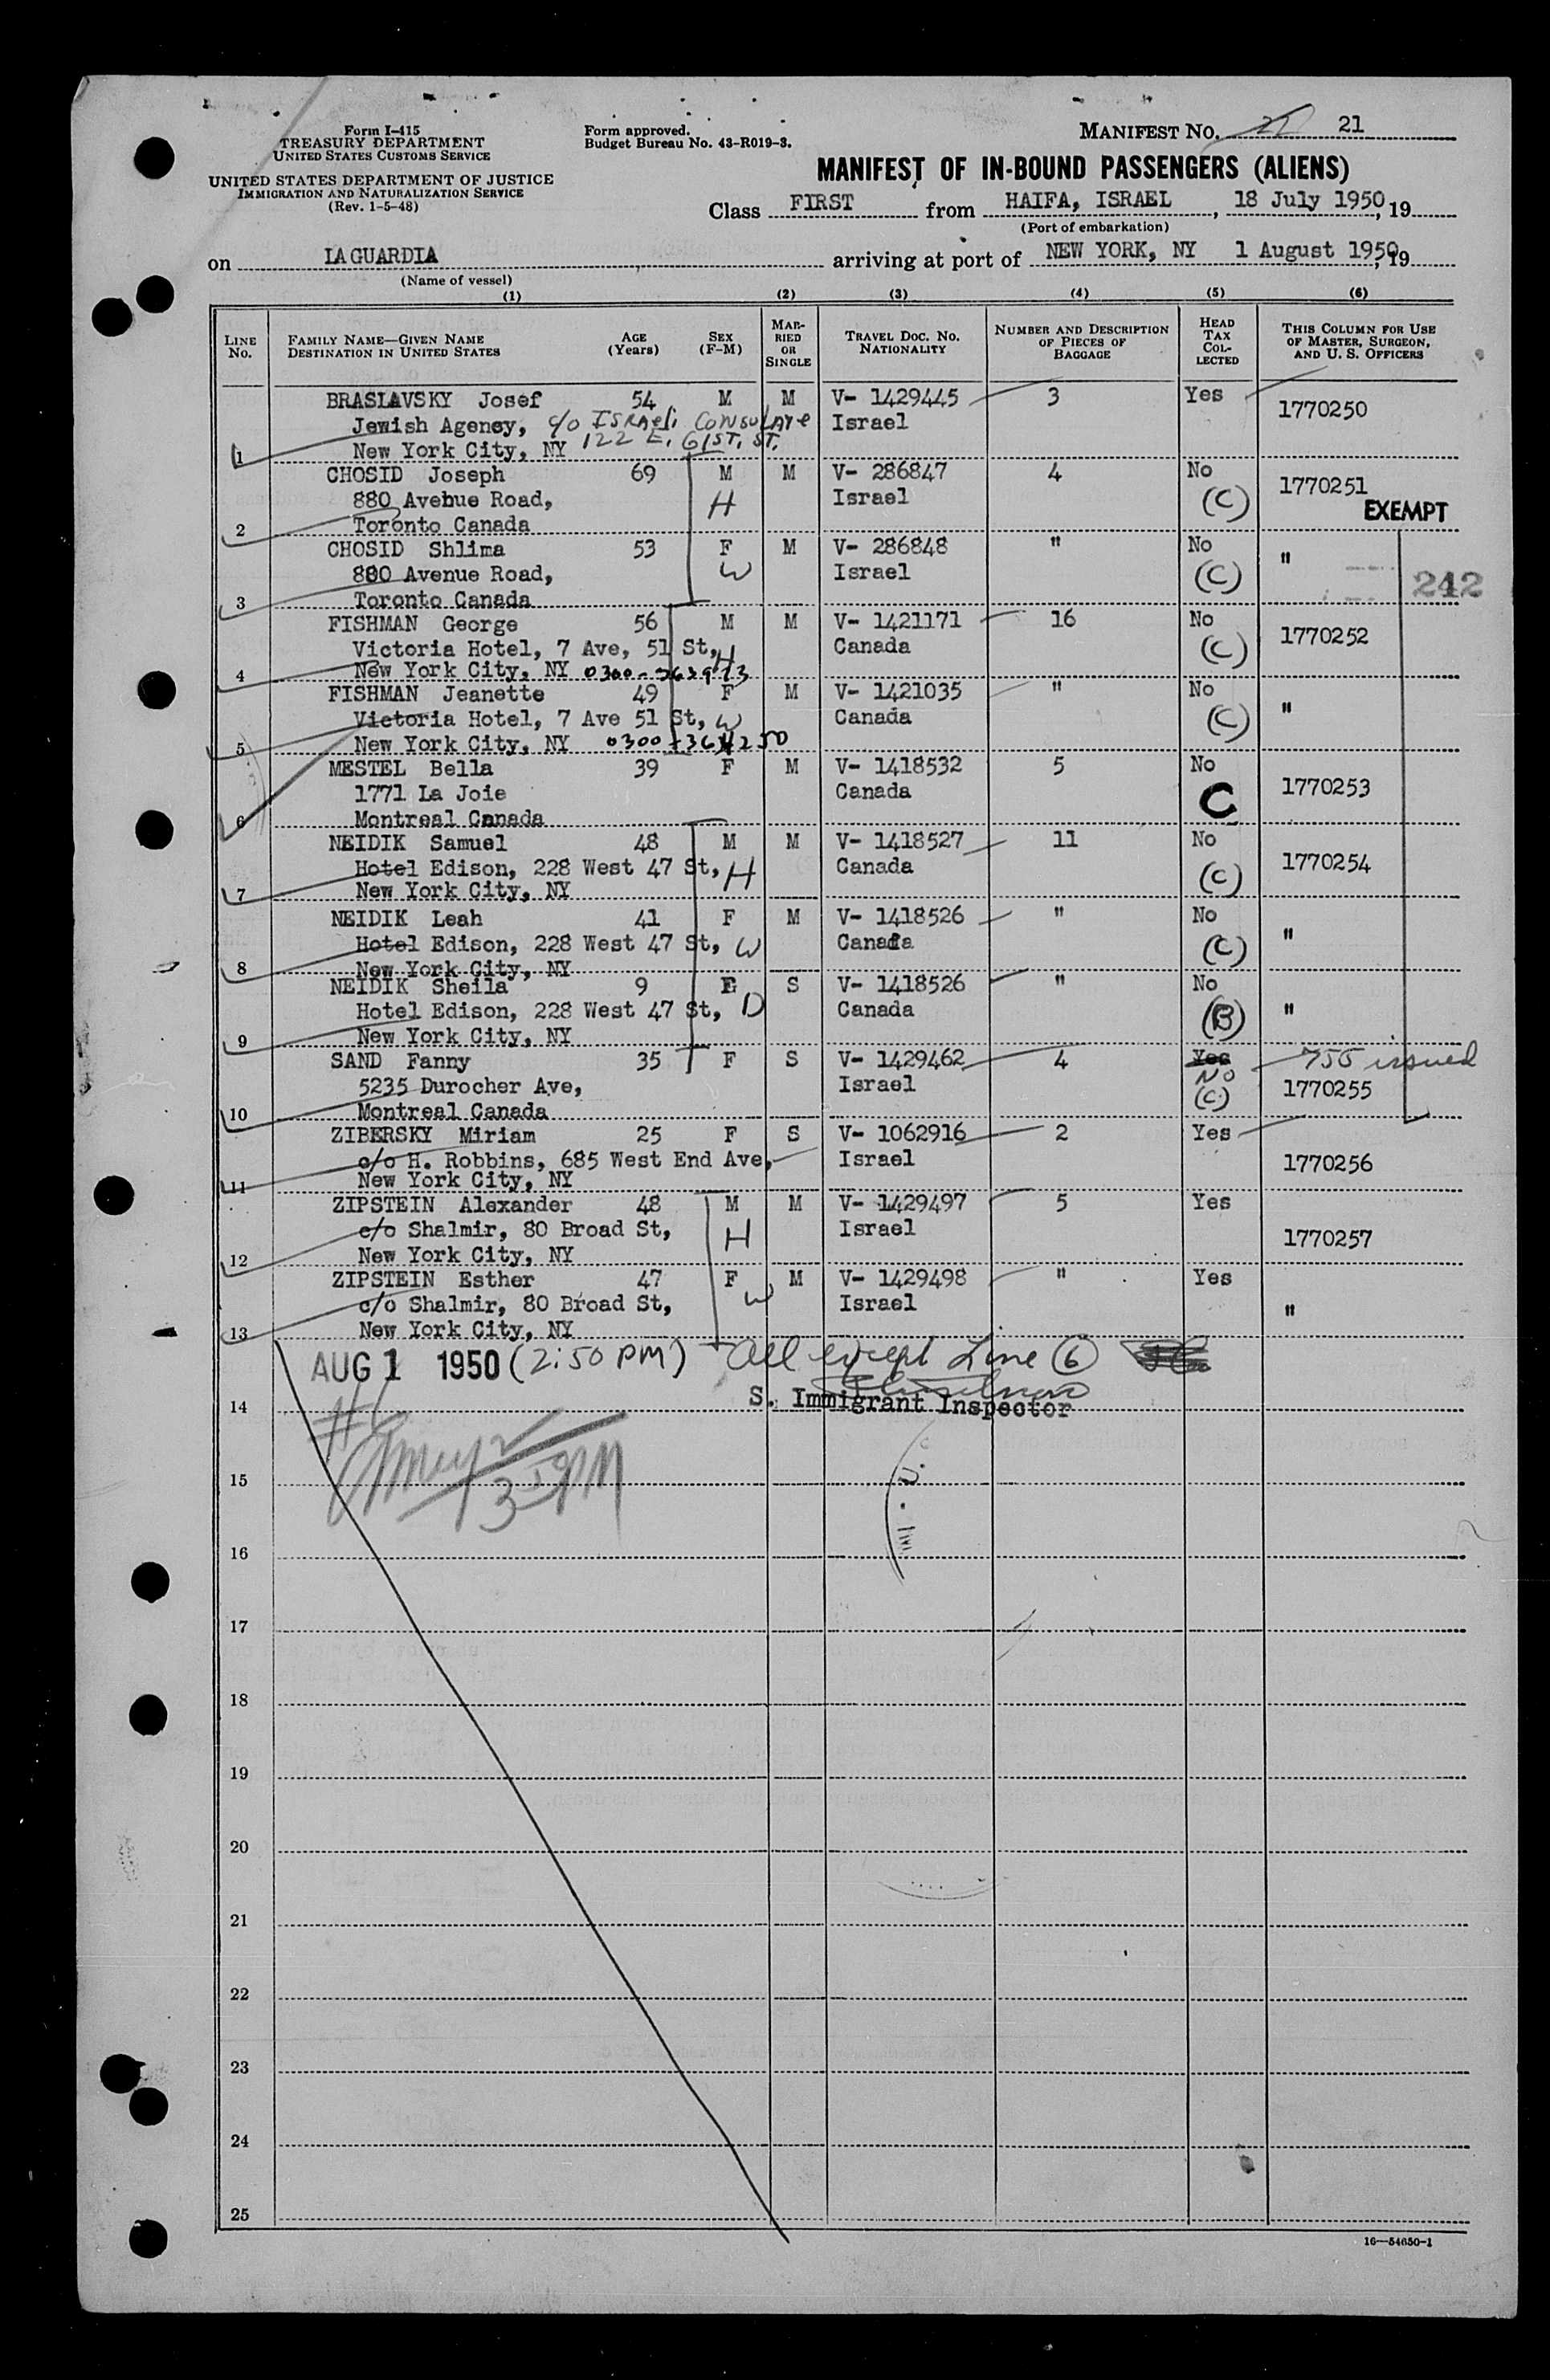 Form I-415
TREASURY DEPARTMENT
UNITED STATES CUSTOMS SERVICE
UNITED STATES DEPARTMENT OF JUSTICE
IMMIGRATION AND NATURALIZATION SERVICE
(Rev. 1-5-48)
Form approved.
Budget Bureau No. 43-R019-3.
MANIFEST NO. 21 21
MANIFEST OF IN-BOUND PASSENGERS (ALIENS)
Class FIRST from HAIFA, ISRAEL, 18 July 1950, 19
(Port of embarkation)
on LAGUARDIA arriving at port of NEW YORK, NY 1 August 1950, 19
(Name of vessel)
(1) (2) (3) (4) (5) (6)
LINE No. FAMILY NAME—GIVEN NAME DESTINATION IN UNITED STATES AGE (Years) SEX (F-M) MARRIED OR SINGLE TRAVEL DOC. NO. NATIONALITY NUMBER AND DESCRIPTION OF PIECES OF BAGGAGE HEAD TAX COLLECTED THIS COLUMN FOR USE OF MASTER, SURGEON, AND U. S. OFFICERS
BRASLAVSKY Josef 54 M M V- 1429445 3 Yes 1770250
Jewish Agency, c/o ISRAELi CONSULATE Israel
1 New York City, NY 122 E. 61ST. ST.
CHOSID Joseph 69 M M V- 286847 4 No 1770251
880 Avebue Road, H Israel (C) EXEMPT
2 Toronto Canada
CHOSID Shlima 53 F M V- 286848 " No "
880 Avenue Road, W Israel (C) 242
3 Toronto Canada
FISHMAN George 56 M M V- 1421171 16 No 1770252
Victoria Hotel, 7 Ave, 51 St, H Canada (C)
4 New York City, NY
FISHMAN Jeanette 49 F M V- 1421035 " No "
Victoria Hotel, 7 Ave 51 St, W Canada (C)
5 New York City, NY
MESTEL Bella 39 F M V- 1418532 5 No 1770253
1771 La Joie Canada C
6 Montreal Canada
NEIDIK Samuel 48 M M V- 1418527 11 No 1770254
Hotel Edison, 228 West 47 St, H Canada (C)
7 New York City, NY
NEIDIK Leah 41 F M V- 1418526 " No "
Hotel Edison, 228 West 47 St, W Canada (C)
8 New York City, NY
NEIDIK Sheila 9 F S V- 1418526 " No "
Hotel Edison, 228 West 47 St, D Canada (B)
9 New York City, NY
SAND Fanny 35 F S V- 1429462 4 Yes No 755 issued
5235 Durocher Ave, Israel (C) 1770255
10 Montreal Canada
ZIBERSKY Miriam 25 F S V- 1062916 2 Yes 1770256
c/o H. Robbins, 685 West End Ave, Israel
11 New York City, NY
ZIPSTEIN Alexander 48 M M V- 1429497 5 Yes 1770257
c/o Shalmir, 80 Broad St, H Israel
12 New York City, NY
ZIPSTEIN Esther 47 F M V- 1429498 " Yes "
c/o Shalmir, 80 Broad St, W Israel
13 New York City, NY
AUG 1 1950 (2:50 PM) All except Line (6)
S. Immigrant Inspector
14
#6
15
16
17
18
19
20
21
22
23
24
25
16—54650-1